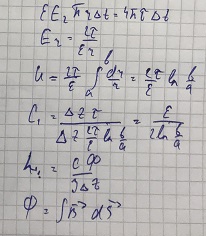 εE₂ π r Δt = 4πτ Δt
E r = 2τ / εr
U = 2τ/ε ∫ₐᵇ dr/r = 2τ/ε ln b/a
C₁ = Δz τ / (Δz 2τ/ε ln b/a) = ε / (2 ln b/a)
L₁ = cΦ / ℐΔz
Φ = ∫B⃗ dS⃗